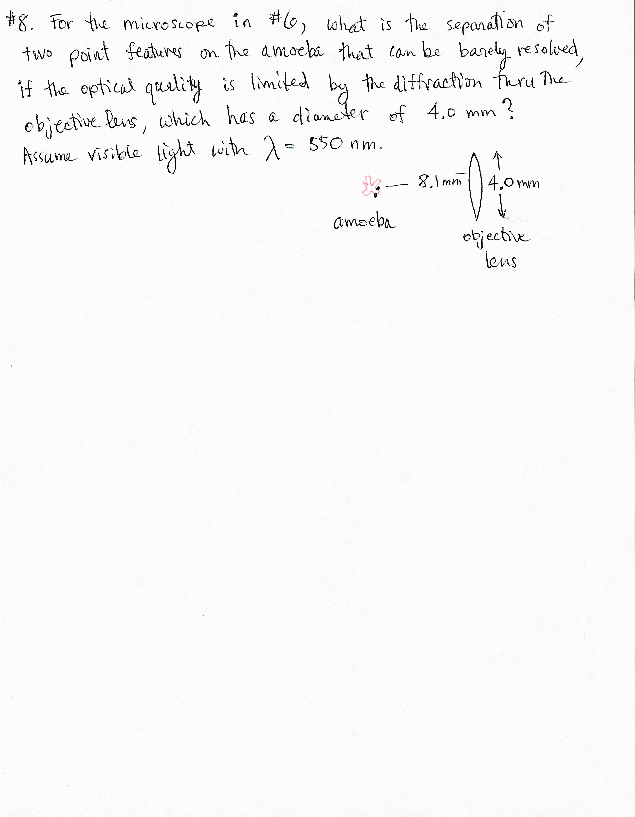 #8. For the microscope in #6, what is the separation of
two point features on the amoeba that can be barely resolved,
if the optical quality is limited by the diffraction thru the
objective lens, which has a diameter of 4.0 mm?
Assume visible light with λ = 550 nm.
8.1 mm
4.0 mm
amoeba
objective
lens